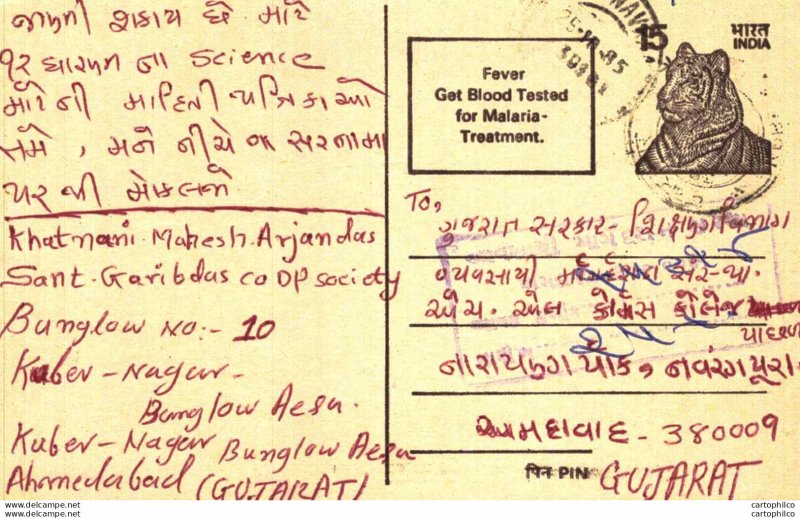 જાણી શકાય છે. માટે
૧૨ ધોરણ ના Science
માટેની માહિતી પત્રિકાઓ
તમે, મને નીચે ના સરનામા
પર જ મોકલજો
Khatnani. Mahesh. Arjandas
Sant. Garibdas co OP society
Bunglow No:- 10
Kuber-Nagar-
Bunglow Aesa.
Kuber-Nagar Bunglow Aesa
Ahmedabad (GUJARAT)
Fever
Get Blood Tested
for Malaria-
Treatment.
15
भारत
INDIA
To,
ગુજરાત સરકાર- શિક્ષણ વિભાગ
વ્યવસાયી
એચ. એલ કોમર્સ કોલેજ
નવરંગપુરા
અમદાવાદ - 380009
पिन PIN GUJARAT
www.cartophilco.com
cartophilco
cartophilco